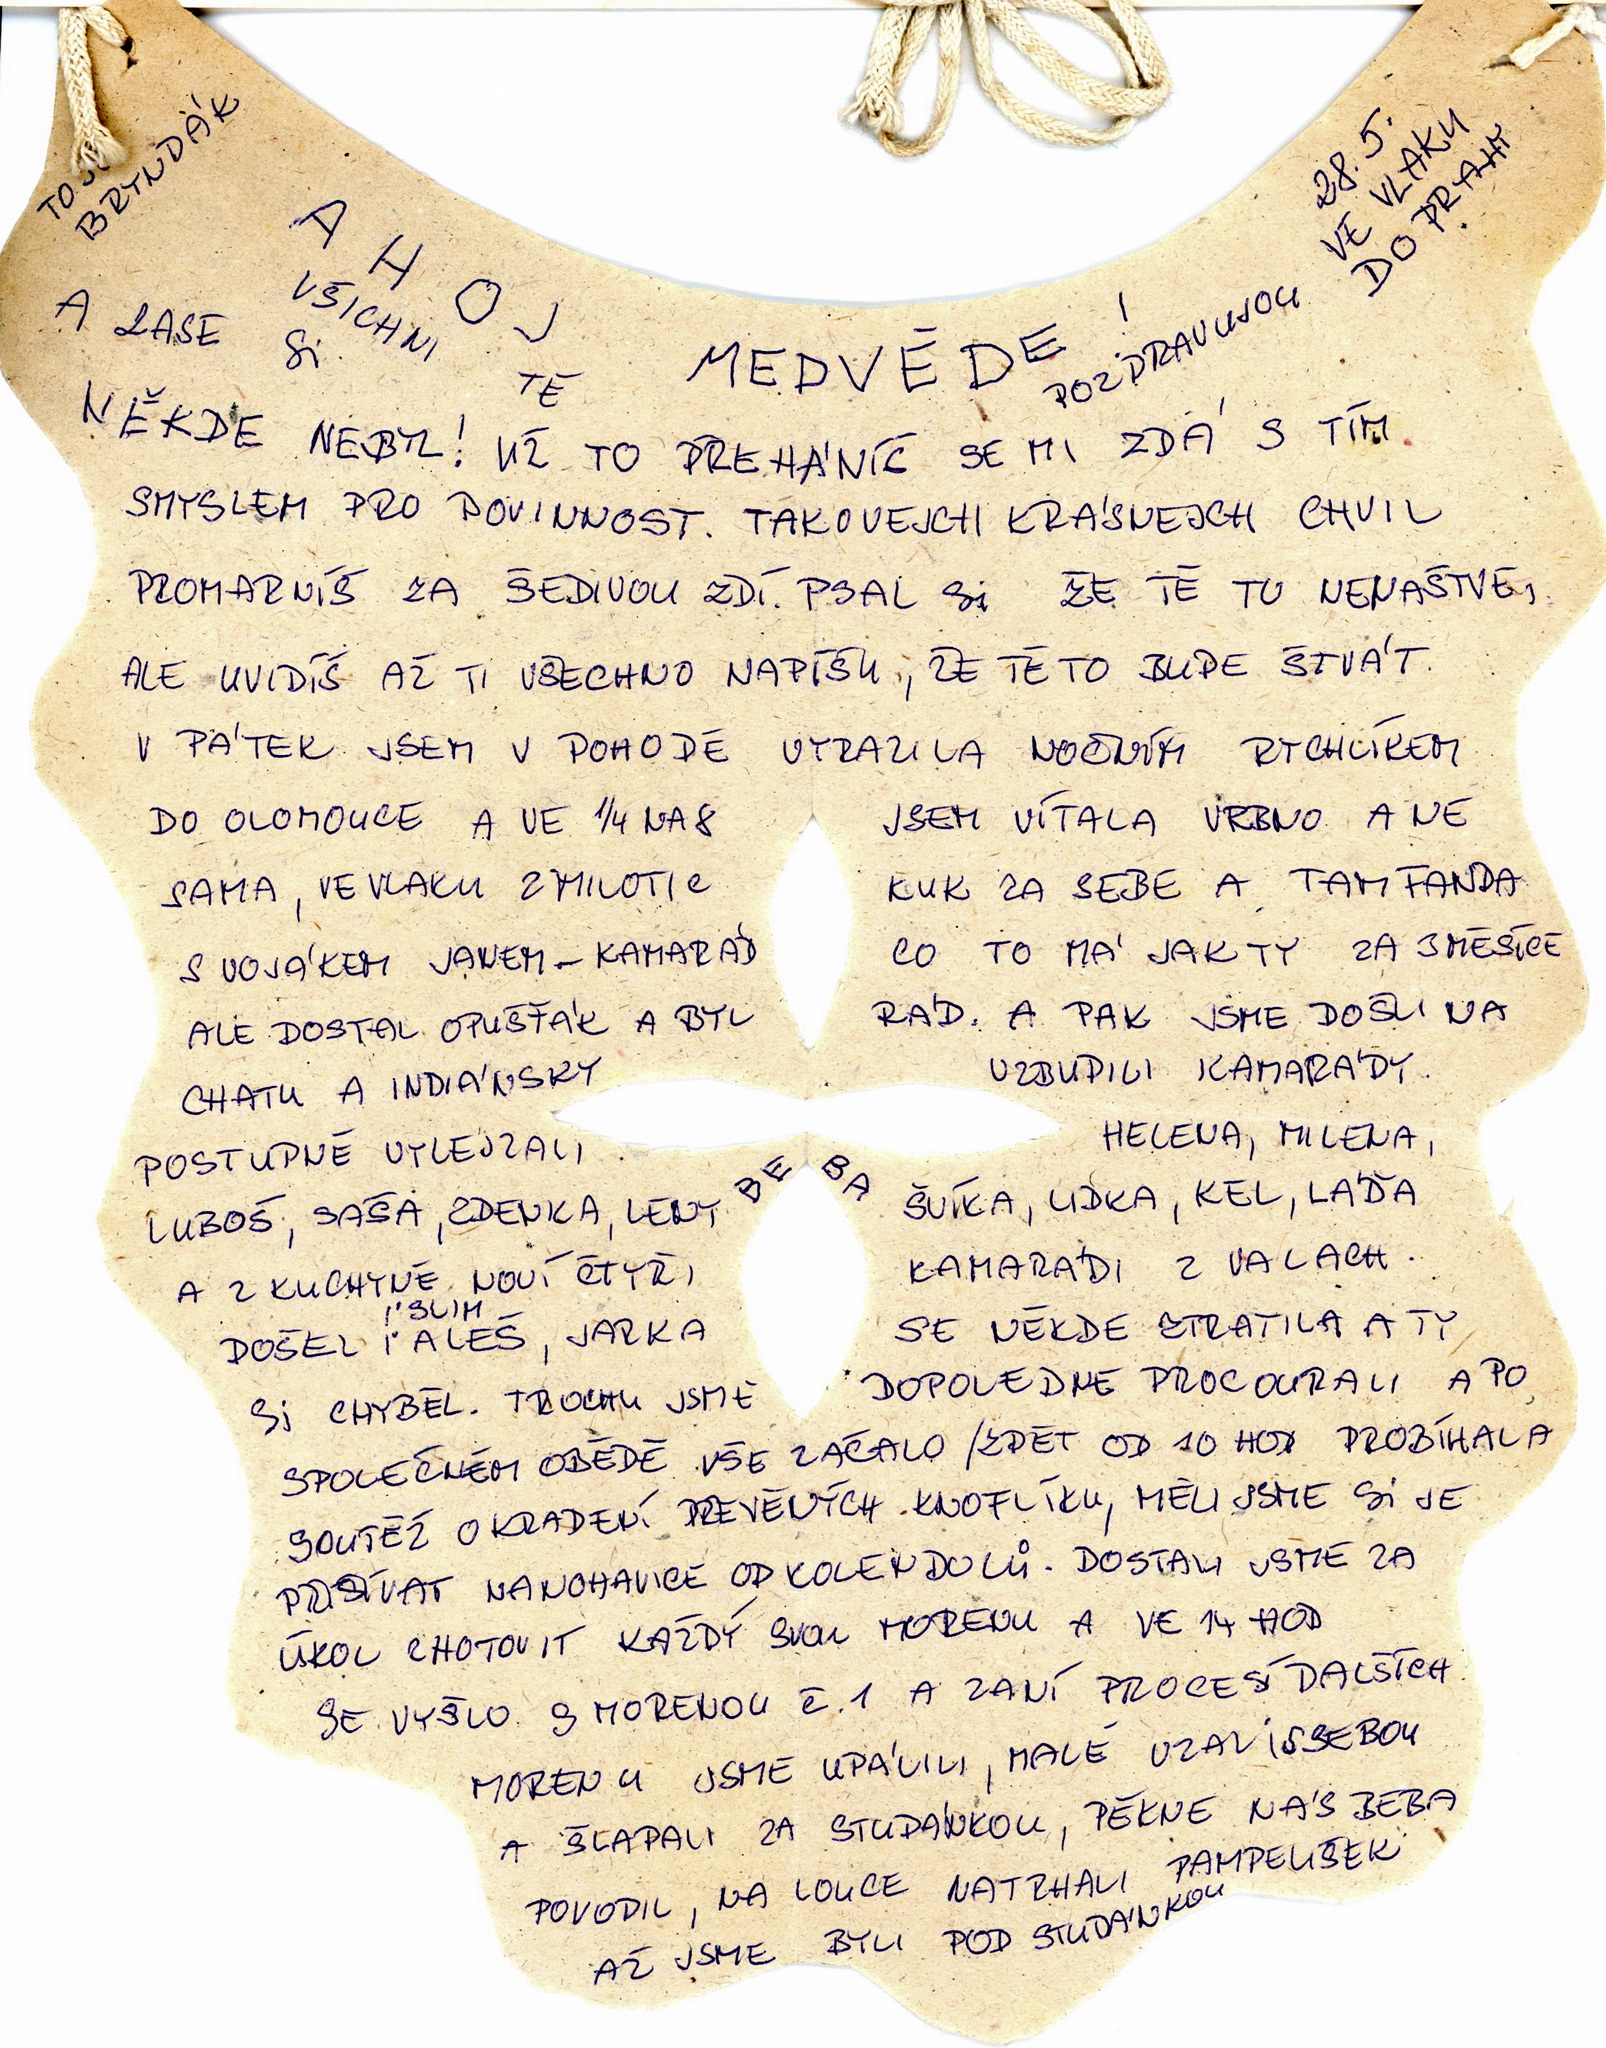 TO JE
BRYNDÁK
28.5.
VE VLAKU
DO PRAHY
AHOJ MEDVĚDE!
VŠICHNI TĚ POZDRAVUJOU
A ZASE SI
NĚKDE NEBYL! UŽ TO PŘEHÁNÍŠ SE MI ZDÁ S TÍM
SMYSLEM PRO POVINNOST. TAKOVEJCH KRÁSNEJCH CHVIL
PROMARNÍŠ ZA ŠEDIVOU ZDÍ. PSAL SI ŽE TĚ TO NENAŠTVE,
ALE UVIDÍŠ AŽ TI VŠECHNO NAPÍŠU, ŽE TĚ TO BUDE ŠTVÁT.
V PÁTEK JSEM V POHODĚ VYRAZILA NOČNÍM RYCHLÍKEM
DO OLOMOUCE A VE 1/4 NA 8 JSEM VÍTALA VRBNO A NE
SAMA, VE VLAKU Z MILOTIC KUK ZA SEBE A TAM FANDA
S VOJÁKEM JANEM - KAMARÁD CO TO MÁ JAK TY ZA 3 MĚSÍCE
ALE DOSTAL OPUŠŤÁK A BYL RÁD. A PAK JSME DOŠLI NA
CHATU A INDIÁNSKY VZBUDILI KAMARÁDY.
POSTUPNĚ VYLEJZALI HELENA, MILENA,
LUBOŠ, SAŠA, ZDENKA, LENY BEBA ŠVÍKA, LIDKA, KEL, LÁĎA
A Z KUCHYNĚ NOVÍ ČTYŘI KAMARÁDI Z VALACH.
I SLIM
DOŠEL I ALEŠ, JARKA SE NĚKDE ZTRATILA A TY
SI CHYBĚL. TROCHU JSME DOPOLEDNE PROCOURALI A PO
SPOLEČNÉM OBĚDĚ VŠE ZAČALO /ZPĚT OD 10 HOD PROBÍHALA
SOUTĚŽ O KRADENÍ DŘEVĚNÝCH KNOFLÍKU, MĚLI JSME SI JE
PŘIŠÍVAT NA NOHAVICE OD KOLEN DOLŮ. DOSTALI JSME ZA
ÚKOL ZHOTOVIT KAŽDÝ SVOU MORENU A VE 14 HOD
SE VYŠLO S MORENOU Č.1 A ZA NÍ PROCESÍ DALŠÍCH
MORENU JSME UPÁLILI, MALÉ VZALI S SEBOU
A ŠLAPALI ZA STUDÁNKOU, PĚKNE NÁS BEBA
POVODIL, NA LOUCE NATRHALI PAMPELIŠEK
AŽ JSME BYLI POD STUDÁNKOU